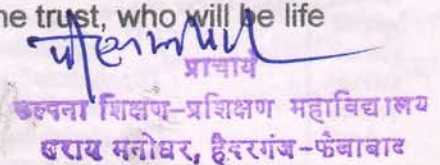 he trust, who will be life
प्राचार्य
कल्पना शिक्षण-प्रशिक्षण महाविद्यालय
सराय मनोधर, हैदरगंज-फैजाबाद